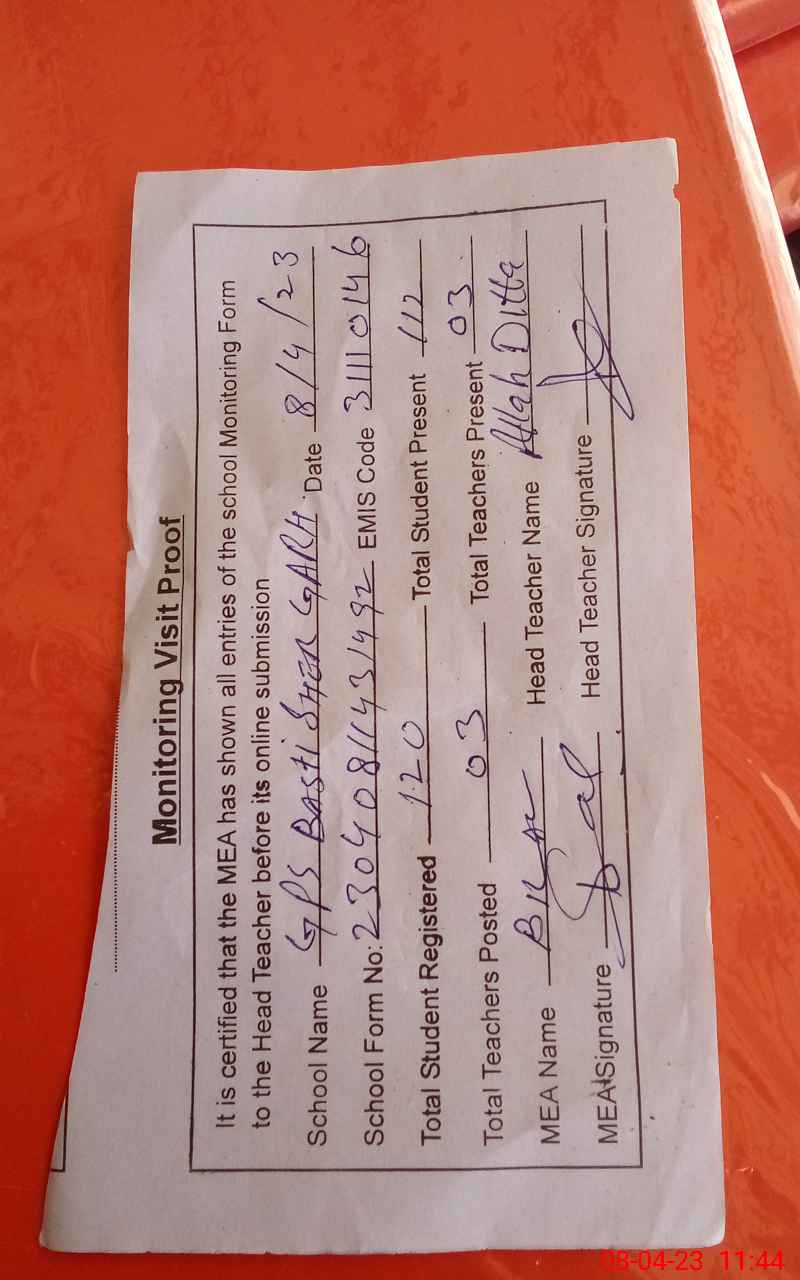 Monitoring Visit Proof
It is certified that the MEA has shown all entries of the school Monitoring Form
to the Head Teacher before its online submission
School Name GPS BASTI SHER GARH Date 8/4/23
School Form No: 23040811431492 EMIS Code 31110146
Total Student Registered 120 Total Student Present 112
Total Teachers Posted 03 Total Teachers Present 03
MEA Name Head Teacher Name Allah Ditta
MEA Signature Head Teacher Signature
08-04-23 11:44